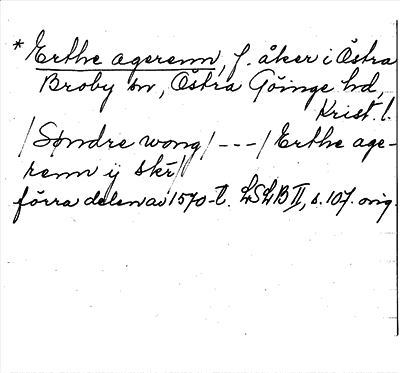 * Erthe agerenn, f. åker i Östra
Broby sn, Östra Göinge hd,
Krist. l.
/ Søndre wong / - - - / Erthe age-
renn ij skr //
förra delen av 1570-t. LSLB II, s. 107. orig.